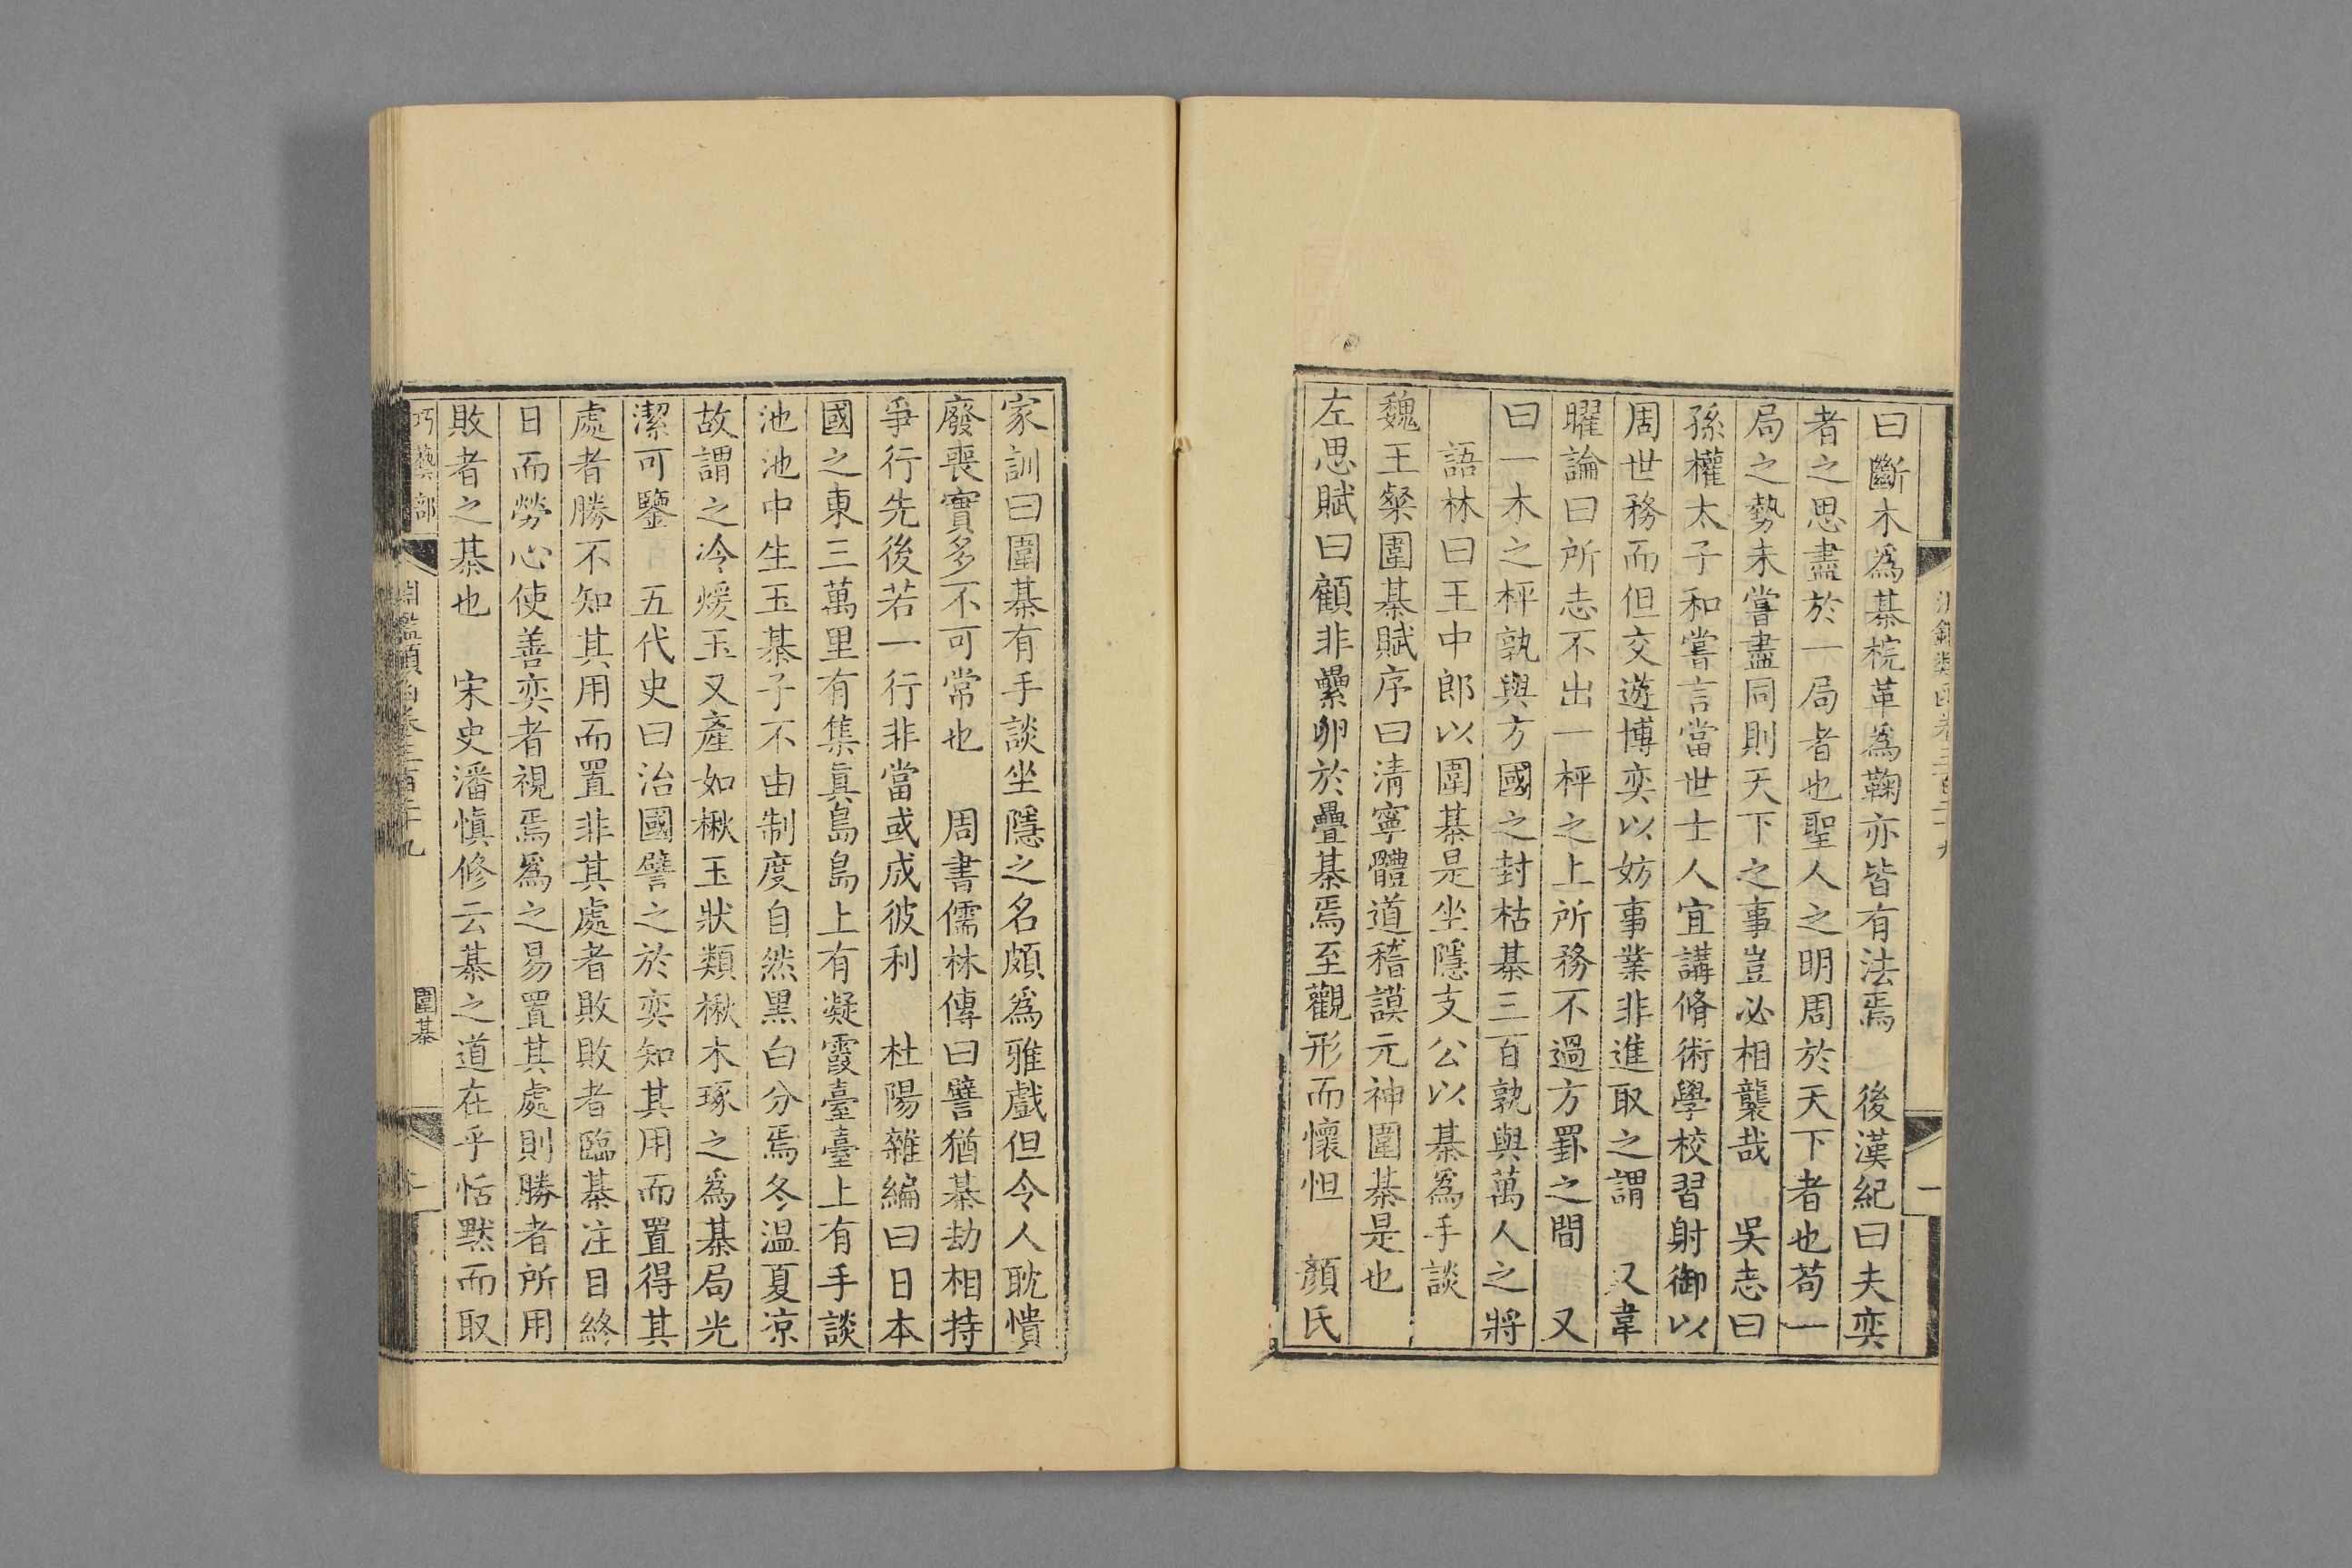 曰斷木爲棊梡革爲鞠亦皆有法焉　後漢紀曰夫奕
者之思盡於一局者也聖人之明周於天下者也苟一
局之勢未嘗盡同則天下之事豈必相襲哉　吳志曰
孫權太子和嘗言當世士人宜講脩術學校習射御以
周世務而但交遊博奕以妨事業非進取之謂　又韋
曜論曰所志不出一枰之上所務不過方罫之間　又
曰一木之枰孰與方國之封枯棊三百孰與萬人之將
語林曰王中郎以圍棊是坐隱支公以棊爲手談
魏王粲圍棊賦序曰清寧體道稽謨元神圍棊是也
左思賦曰顧非纍卵於疊棊焉至觀形而懷怛　顏氏
家訓曰圍棊有手談坐隱之名頗爲雅戲但令人耽憒
廢喪實多不可常也　周書儒林傳曰譬猶棊劫相持
爭行先後若一行非當或成彼利　杜陽雜編曰日本
國之東三萬里有集眞島島上有凝霞臺臺上有手談
池池中生玉棊子不由制度自然黑白分焉冬温夏凉
故謂之冷煖玉又產如楸玉狀類楸木琢之爲棊局光
潔可鑒　五代史曰治國譬之於奕知其用而置得其
處者勝不知其用而置非其處者敗敗者臨棊注目終
日而勞心使善奕者視焉爲之易置其處則勝者所用
敗者之棊也　宋史潘慎修云棊之道在乎恬默而取
巧藝部
淵鑑類函卷三百二十九
圍棊